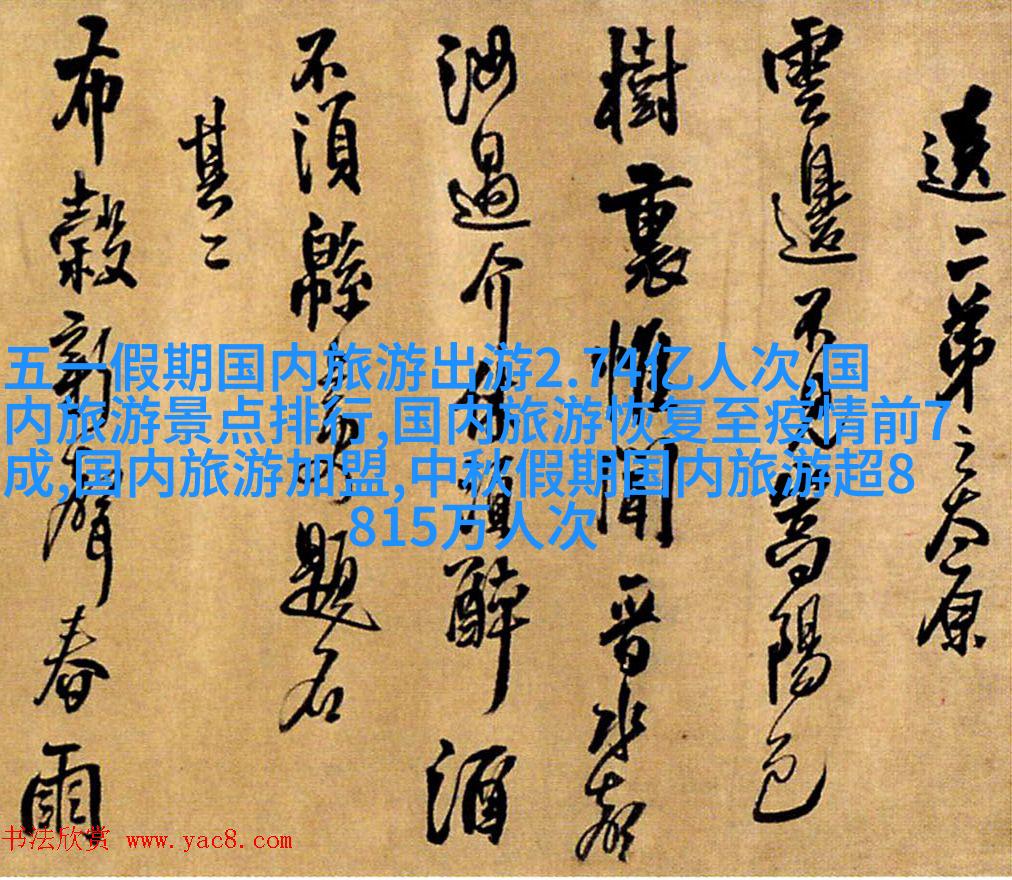 送二弟之太原
雲邊不見嵩陽色
樹裏惟聞晉水
汝過介休須醉酒
不須緜上題名
其二
布穀新聲春雨
五一假期国内旅游出游2.74亿人次,国
内旅游景点排行,国内旅游恢复至疫情前7
成,国内旅游加盟,中秋假期国内旅游超8
815万人次
书法欣赏 www.yac8.com